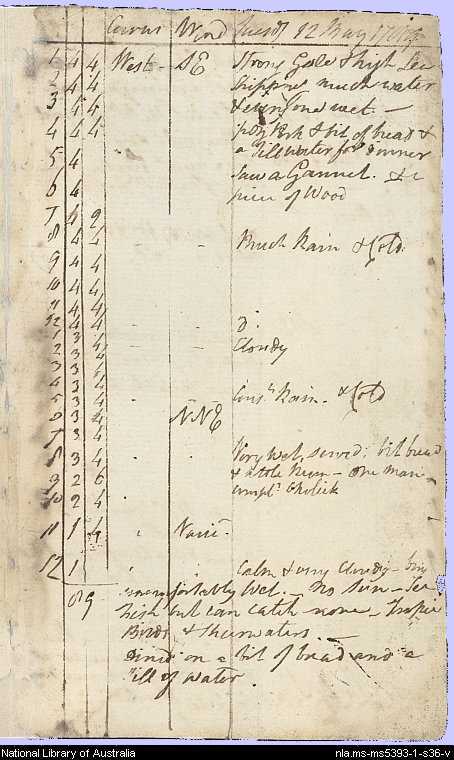 Courses Wind Tuesdy 12 May 1789
1 4 4 West - SE Strong Gale & high Sea
2 4 4 Shipping much water
3 4 4 & every one wet. -
4 4 4 Pork & bit of bread &
5 4 a Gill water for dinner
6 4 Saw a Gannet. & a
piece of Wood
7 4 2
8 4 4 - - Much Rain & Cold.
9 4 4
10 4 4
11 4 4
12 4 4 - - Do
1 3 4
2 3 4 - - Cloudy
3 3 4
4 3 4
5 3 4 - Const Rain. & Cold
6 3 4 NNE
7 3 4
8 3 4 Very wet, served: bit bread
9 2 6 & a tole Rum - one man
10 2 4 complt Cholick
11 1 4 Varie-
12 1 Calm & very Cloudy - very
89 uncomfortably Wet. - no Sun - See
fish but can catch none - Tropic
Birds & Shearwaters. -
Dined on a bit of bread and a
Gill of water.
National Library of Australia nla.ms-ms5393-1-s36-v